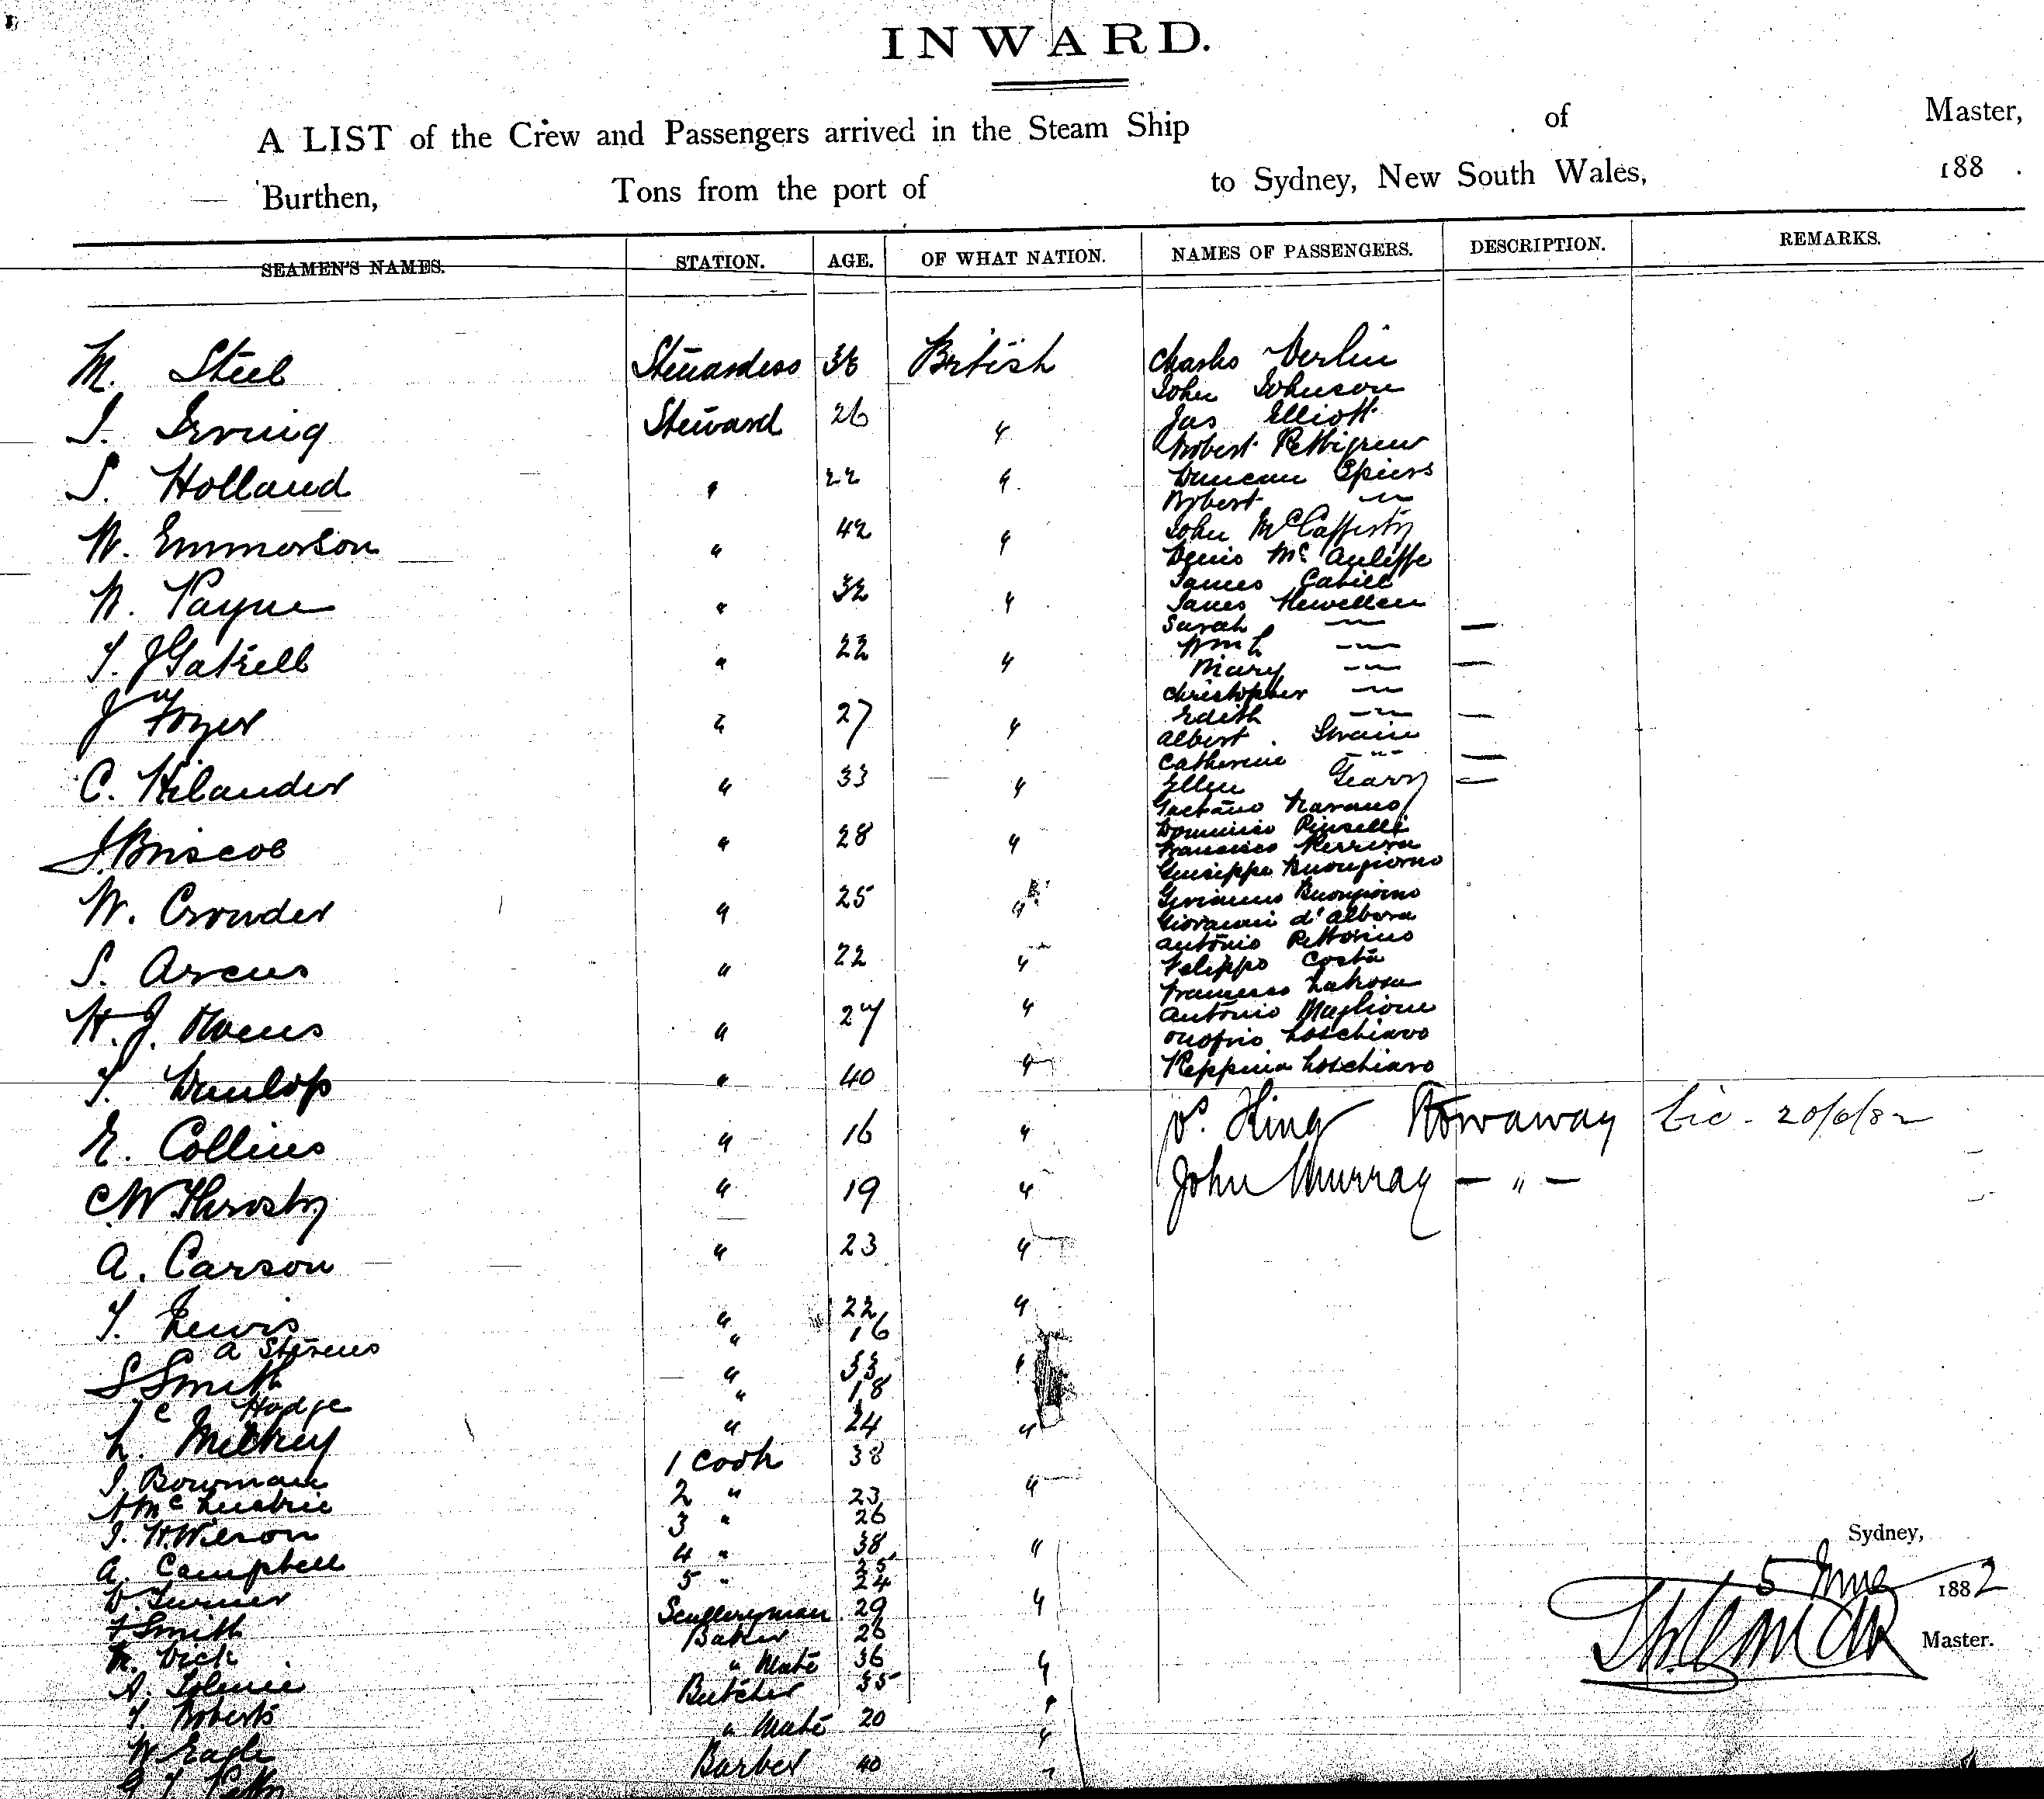 INWARD.
A LIST of the Crew and Passengers arrived in the Steam Ship of Master,
Burthen, Tons from the port of to Sydney, New South Wales, 188 .
SEAMEN'S NAMES. STATION. AGE. OF WHAT NATION. NAMES OF PASSENGERS. DESCRIPTION. REMARKS.
M. Steel Stewardess 36 British
Charles Verlin
John Johnson
J. Irving Steward 26 "
Jas Elliott
Robert Pettigrew
S. Holland " 22 "
Duncan Spiers
Robert "
W. Emmerson " 42 "
John McCafferty
Denis McAuliffe
James Cahill
W. Payne " 32 "
James Hewellen
Sarah " —
T. J Gatrell " 22 "
Wm L "
Mary " —
Christopher "
J W Fozer " 27 "
Edith " —
Albert Swain
Catherine " —
C. Hilander " 33 "
Ellen Geary —
Gaetano
Domenico
J. Briscoe " 28 "
Francesco
Giuseppe Buongiorno
W. Crowder " 25 "
Buongiorno
Giovanni d'Albora
S. Arcus " 22 "
Antonio Pettorino
Felippo Costa
Francesco
H. J. Owens " 27 "
Antonio Maglione
Onofrio Loschiavo
T. Dunlop " 40 "
Peppina Loschiavo
E. Collins " 16 "
King Stowaway 20/6/82
C W Throsby " 19 "
John Murray — " —
A. Carson " 23 "
T. Lewis " 22 "
A Stevens " 16
S Smith " 33 "
Hodge " 18
L. " 24 "
J. Bowman 1 Cook 38
2 " 23 "
J. H. Wilson 3 " 26
A. Campbell 4 " 38 "
D Turner 5 " 24
F Smith Scullery man 29 "
W. Dick Baker 26
A. " Mate 36 "
T. Roberts Butcher 35 "
W Eagle " Mate 20 "
Barber 40 "
Sydney,
5 June 1882
Master.